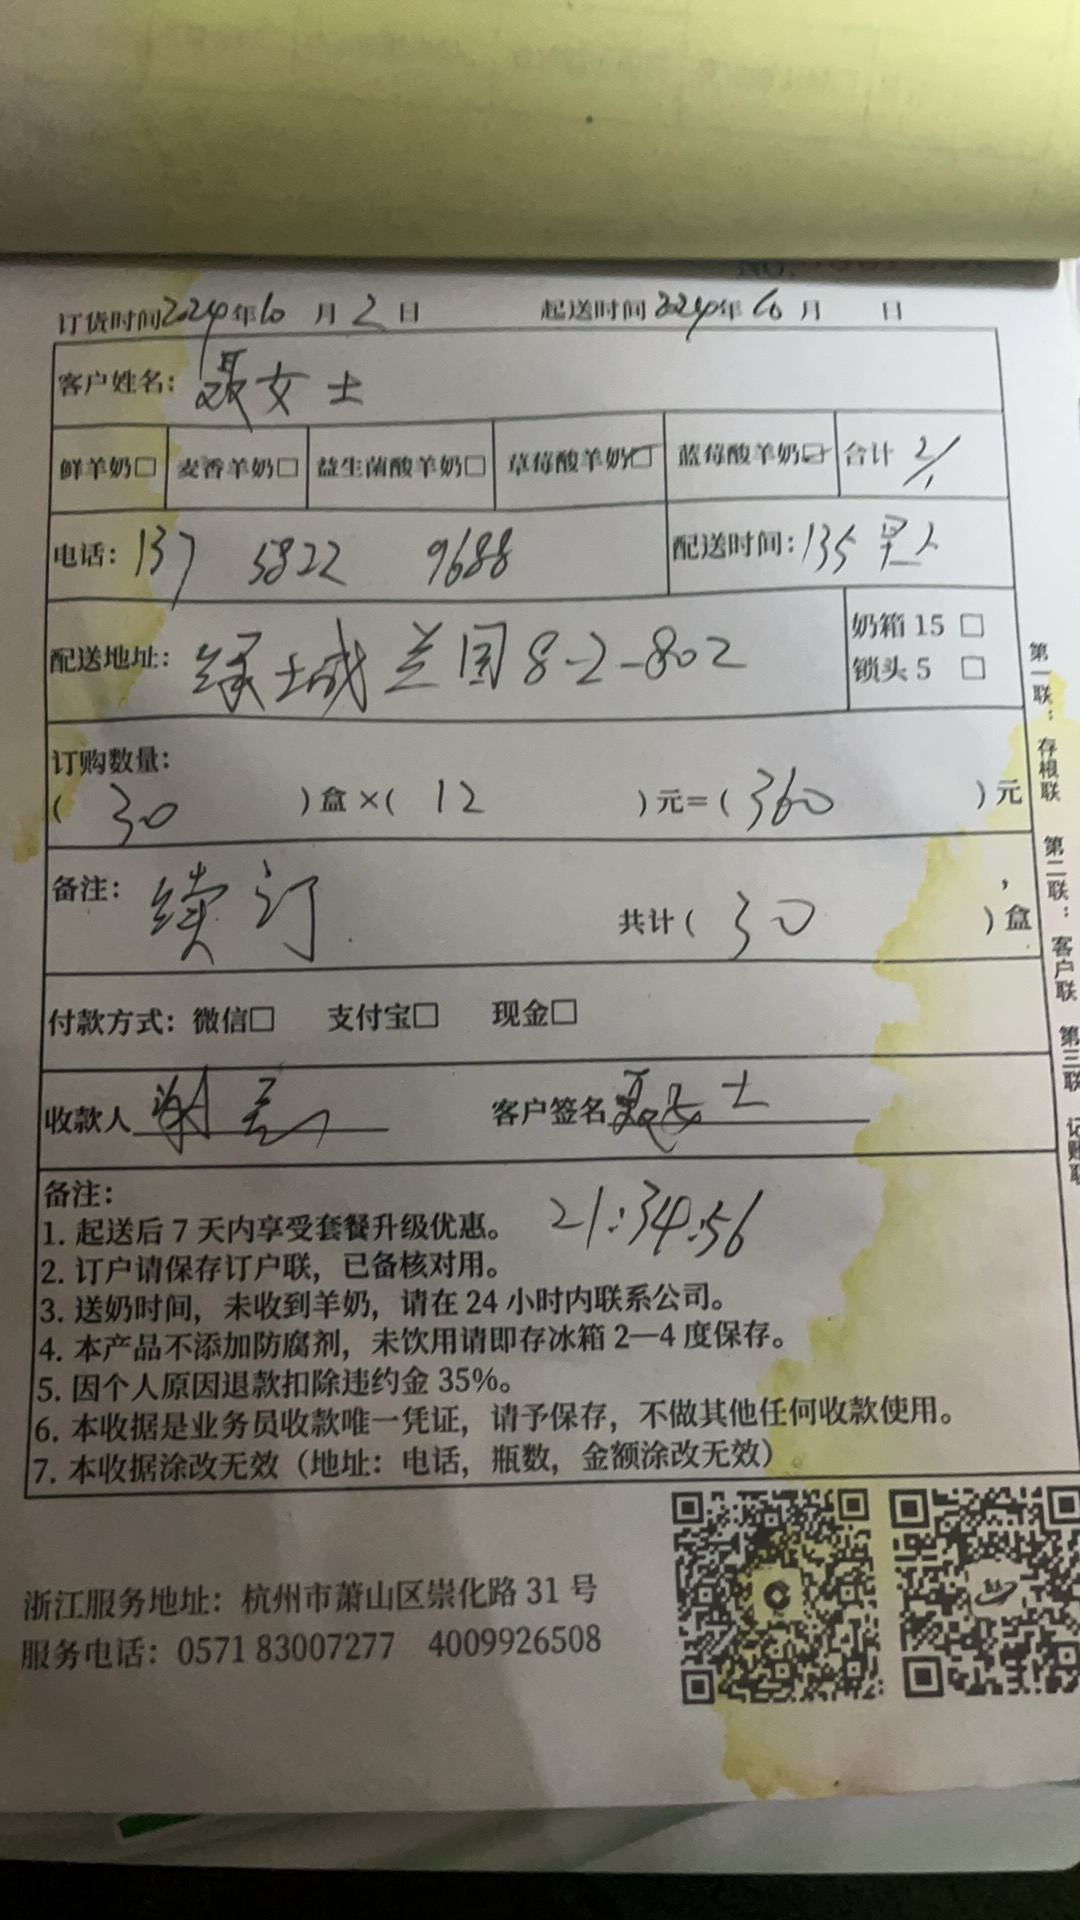 订货时间2024年10月2日 起送时间2024年10月 日
客户姓名：聂女士
鲜羊奶□ 麦香羊奶□ 益生菌酸羊奶□ 草莓酸羊奶☑ 蓝莓酸羊奶☑ 合计 2/1
电话：137 5822 9688 配送时间：135 早上
配送地址：绿城兰园8-2-802 奶箱 15 □
锁头 5 □
订购数量：
( 30 ) 盒 ×( 12 ) 元=( 360 ) 元
备注：续订 共计( 30 ) 盒
付款方式：微信□ 支付宝□ 现金□
收款人 谢 客户签名 聂女士
备注：
21:34:56
1. 起送后 7 天内享受套餐升级优惠。
2. 订户请保存订户联，已备核对用。
3. 送奶时间，未收到羊奶，请在 24 小时内联系公司。
4. 本产品不添加防腐剂，未饮用请即存冰箱 2—4 度保存。
5. 因个人原因退款扣除违约金 35%。
6. 本收据是业务员收款唯一凭证，请予保存，不做其他任何收款使用。
7. 本收据涂改无效（地址：电话，瓶数，金额涂改无效）
第一联：存根联 第二联：客户联 第三联 记账联
浙江服务地址：杭州市萧山区崇化路 31 号
服务电话：0571 83007277 4009926508